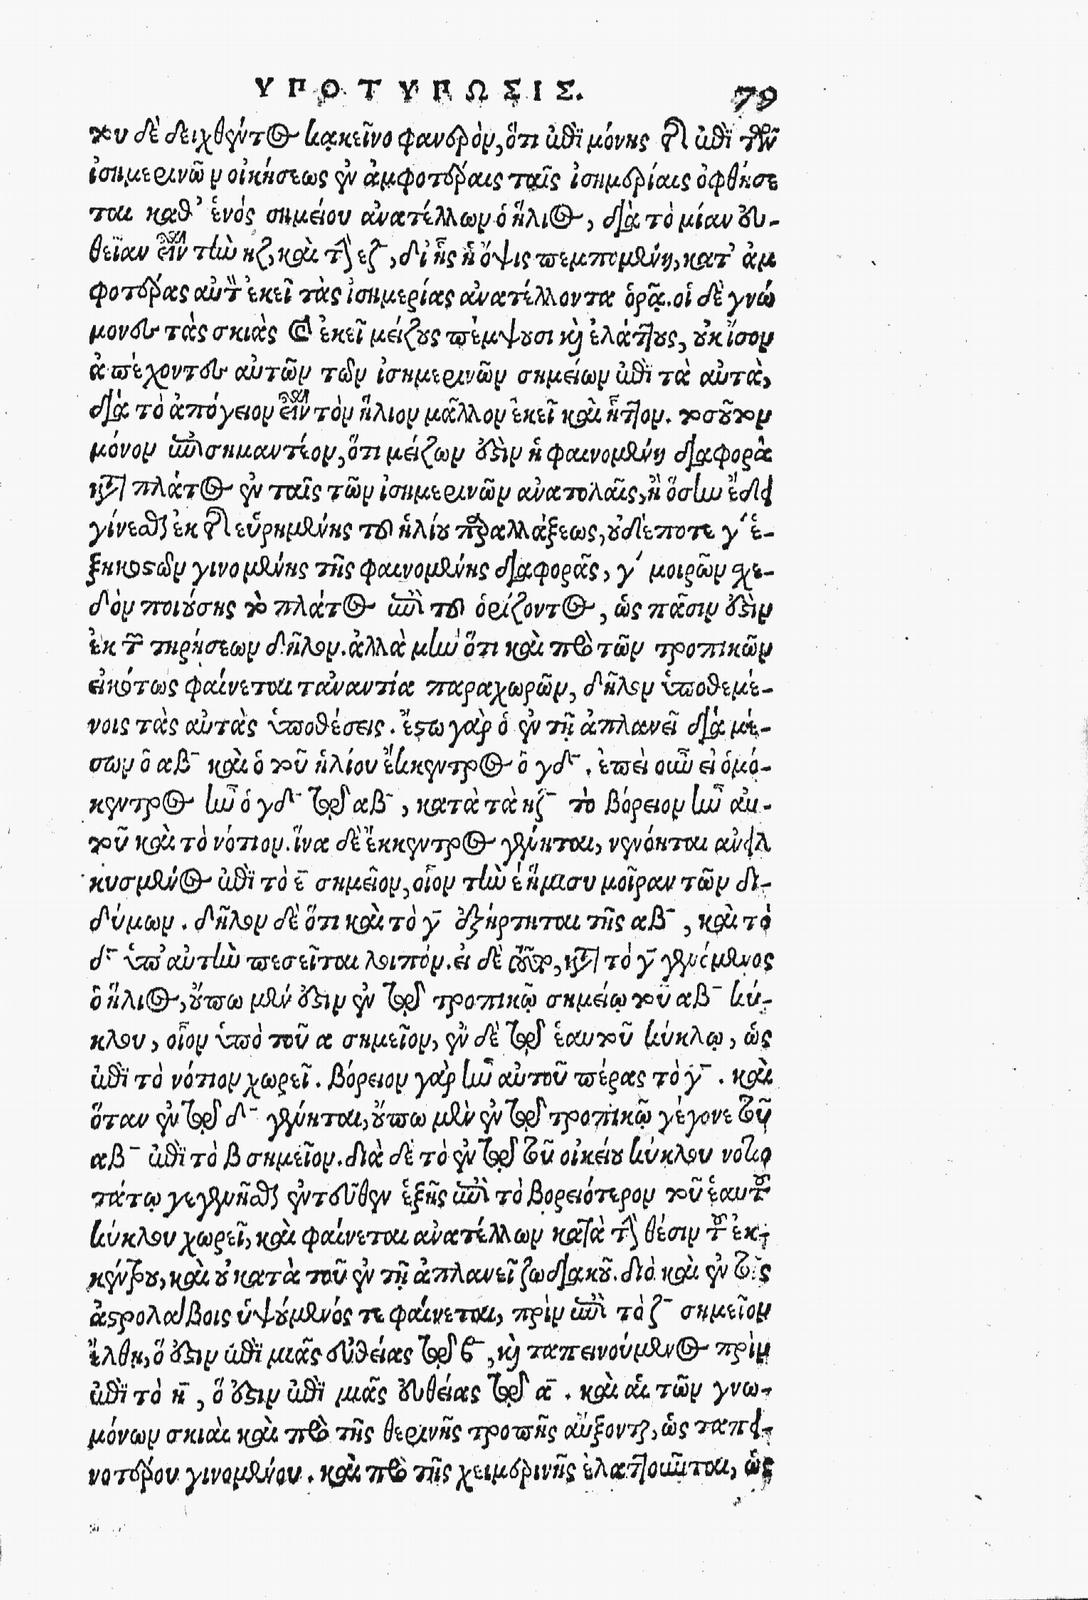 ΥΠΟΤΥΠΩΣΙΣ. 79
του δὲ δειχθέντος κἀκεῖνο φανερὸν, ὅτι ἐπὶ μόνης τῆς ἐπὶ τῶν
ἰσημερινῶν οἰκήσεως ἐν ἀμφοτέραις ταῖς ἰσημερίαις ὀφθήσε
ται καθ' ἑνός σημείου ἀνατέλλων ὁ ἥλιος, διὰ τὸ μίαν εὐ-
θεῖαν εἶναι τὴν ηζ, καὶ τὴν εζ, δι' ἧς ἡ ὄψις πεμπομένη, κατ' ἀμ
φοτέρας αὐτὸν ἐκεῖ τὰς ἰσημερίας ἀνατέλλοντα ὁρᾷ. οἱ δὲ γνώ
μονες τὰς σκιὰς καὶ ἐκεῖ μείζους πέμψουσι καὶ ἐλάττους, οὐκ ἴσον
ἀπέχοντες αὐτῶν τῶν ἰσημερινῶν σημείων ἐπὶ τὰ αὐτὰ,
διὰ τὸ ἀπόγειον εἶναι τὸν ἥλιον μᾶλλον ἐκεῖ καὶ ἧττον. τοσοῦτον
μόνον ἐπισημαντέον, ὅτι μείζων ἐστὶν ἡ φαινομένη διαφορὰ
κατὰ πλάτος ἐν ταῖς τῶν ἰσημερινῶν ἀνατολαῖς, ἢ ὅσην ἔδει
γίνεσθαι ἐκ τῆς εὑρημένης τοῦ ἡλίου παραλλάξεως, οὐδέποτε γ' ἑ-
ξηκοστῶν γινομένης τῆς φαινομένης διαφορᾶς, γ' μοιρῶν σχε-
δὸν ποιούσης τὸ πλάτος ἐπὶ τοῦ ὁρίζοντος, ὡς πᾶσιν ἐστὶν
ἐκ τῶν τηρήσεων δῆλον. ἀλλὰ μὴν ὅτι καὶ περὶ τῶν τροπικῶν
εἰκότως φαίνεται τἀναντία παραχωρῶν, δῆλον ὑποθεμέ-
νοις τὰς αὐτὰς ὑποθέσεις. ἔστω γὰρ ὁ ἐν τῇ ἀπλανεῖ διὰ μέ-
σων ὁ αβ καὶ ὁ τοῦ ἡλίου ἔκκεντρος ὁ γδ. ἐπεὶ οὖν εἰ ὁμό-
κεντρος ἦν ὁ γδ τῷ αβ, κατὰ τὰ ηζ τὸ βόρειον ἦν αὐ-
τοῦ καὶ τὸ νότιον. ἵνα δὲ ἔκκεντρος γένηται, νενόηται ἀνειλ
κυσμένος ἐπὶ τὸ ε σημεῖον, οἷον τὴν ἑ ἥμισυ μοῖραν τῶν δι-
δύμων. δῆλον δὲ ὅτι καὶ τὸ γ ἐξήρτηται τῆς αβ, καὶ τὸ
δ ὑπ' αὐτὴν πεσεῖται λοιπόν. εἰ δὲ τοῦτο, κατὰ τὸ γ γενόμενος
ὁ ἥλιος, οὔπω μέν ἐστιν ἐν τῷ τροπικῷ σημείῳ τοῦ αβ κύ-
κλου, οἷον ὑπὸ τοῦ α σημεῖον, ἐν δὲ τῷ ἑαυτοῦ κύκλῳ, ὡς
ἐπὶ τὸ νότιον χωρεῖ. βόρειον γὰρ ἦν αὐτοῦ πέρας τὸ γ. καὶ
ὅταν ἐν τῷ δ γένηται, οὔπω μὲν ἐν τῷ τροπικῷ γέγονε τοῦ
αβ ἐπὶ τὸ β σημεῖον. διὰ δὲ τὸ ἐν τῷ τοῦ οἰκείου κύκλου νοτιο
τάτῳ γεγενῆσθαι ἐντεῦθεν ἑξῆς ἐπὶ τὸ βορειότερον τοῦ ἑαυτοῦ
κύκλου χωρεῖ, καὶ φαίνεται ἀνατέλλων κατὰ τὴν θέσιν τοῦ ἐκ-
κέντρου, καὶ οὐ κατὰ τοῦ ἐν τῇ ἀπλανεῖ ζωδιακοῦ. διὸ καὶ ἐν τοῖς
ἀστρολάβοις ὑψούμενός τε φαίνεται, πρὶν ἐπὶ τὸ ζ σημεῖον
ἔλθῃ, ὅ ἐστιν ἐπὶ μιᾶς εὐθείας τῷ β, καὶ ταπεινούμενος πρὶν
ἐπὶ τὸ η, ὅ ἐστιν ἐπὶ μιᾶς εὐθείας τῷ α. καὶ αἱ τῶν γνω-
μόνων σκιαὶ καὶ περὶ τῆς θερινῆς τροπῆς αὔξονται, ὡς ταπει-
νοτέρου γινομένου. καὶ περὶ τῆς χειμερινῆς ἐλαττοῦνται, ὡς